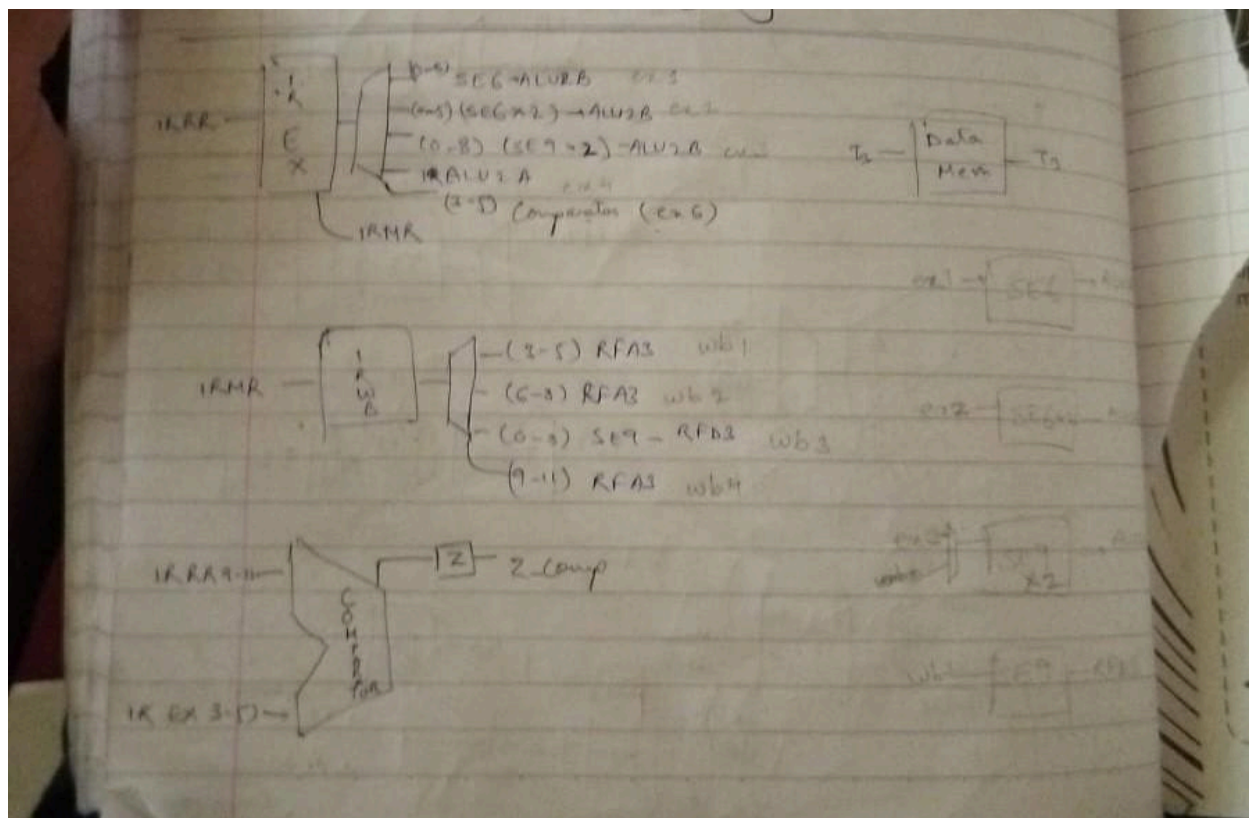 IR EX
IRRR
(0-5) SE6 → ALU2B ex1
(0-5) (SE6×2) → ALU2B ex2
(0-8) (SE9×2) - ALU2B
ALU2A ex4
(3-5) Comparator (ex6)
IRMR
T2
Data Mem
T3
ex1 → SE6
IRMR
IRWB
(3-5) RFA3 wb1
(6-8) RFA3 wb2
(0-8) SE9 - RFD3 wb3
(9-11) RFA3 wb4
ex2
IRRR 9-11
COMPARATOR
Z
Z_comp
SE9 ×2
IR EX 3-5
SE9